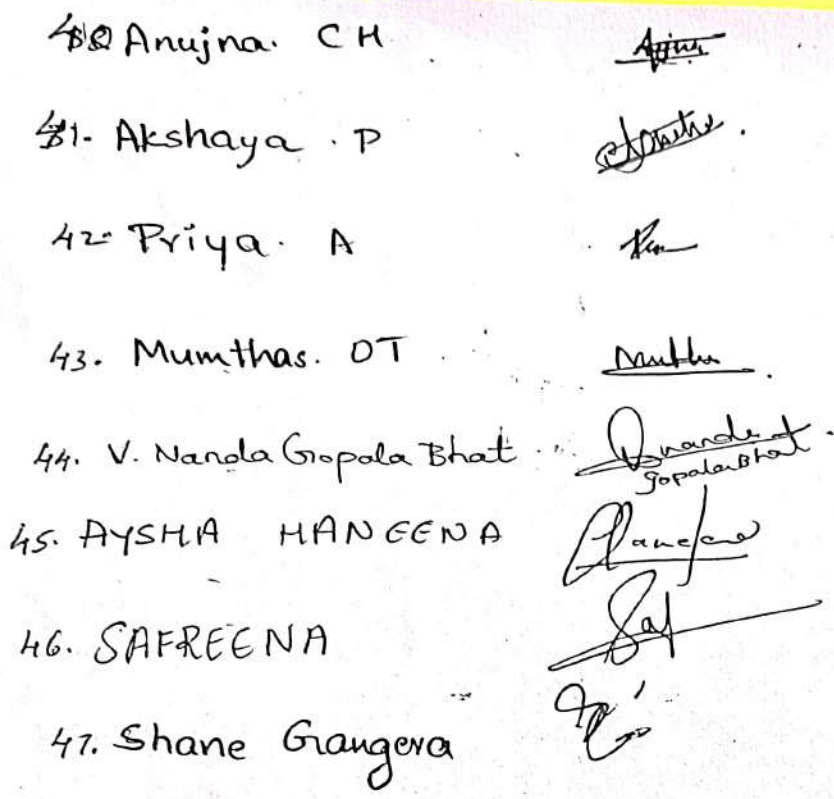 40 Anujna. CH
41. Akshaya . P
42. Priya. A
43. Mumthas. OT
44. V. Nanda Gopala Bhat Gopala Bhat
45. AYSHA HANEENA
46. SAFREENA Saf
47. Shane Gangera